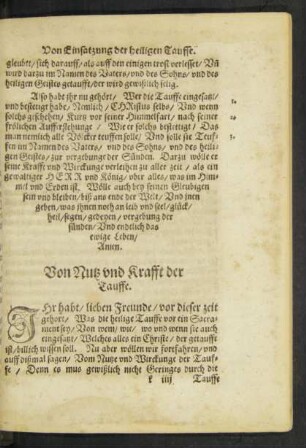 Von Einsatzung der heiligen Tauffe.
gleubet / sich darauff / als auff den einigen trost verlesset / Vñ
wird darzu im Namen des Vaters / vnd des Sohns / vnd des
heiligen Geistes getaufft / der wird gewislich selig.
Also habt ihr nu gehört / Wer die Tauffe eingesatzt /
vnd bestetigt habe / Nemlich / CHRistus selbs / Vnd wenn
solchs geschehen / Kurtz vor seiner Himmelfart / nach seiner
frölichen Aufferstehunge / Wie er solchs bestettigt / Das
man nemlich alle Völcker teuffen solle / Vnd solle sie Teuf-
fen im Namen des Vaters / vnd des Sohns / vnd des heili-
gen Geistes / zur vergebunge der Sünden. Darzu wölle er
seine Krafft vnd Wirckunge verleihen zu aller zeit / als ein
gewaltiger HERR vnd König / vber alles / was im Him-
mel vnd Erden ist / Wölle auch bey seinen Gleubigen
sein vnd bleiben / biß ans ende der Welt / Vnd inen
geben / was ihnen noth an leib vnd seel / glück /
heil / segen / gedeyen / vergebung der
sünden / Vnd endtlich das
ewige Leben /
Amen.
Von Nutz vnd Krafft der
Tauffe.
IHr habt / lieben Freunde / vor dieser zeit
gehört / Was die heilige Tauffe vor ein Sacra-
ment sey / Von wem / wie / wo vnd wenn sie auch
eingesatzt / Welches alles ein Christe / der getaufft
ist / billich wissen soll. Nu aber wöllen wir fortfahren / vnd
auff dißmal sagen / Vom Nutze vnd Wirckunge der Tauf-
fe / Denn es mus gewißlich nicht Geringes durch die
iiij Tauffe